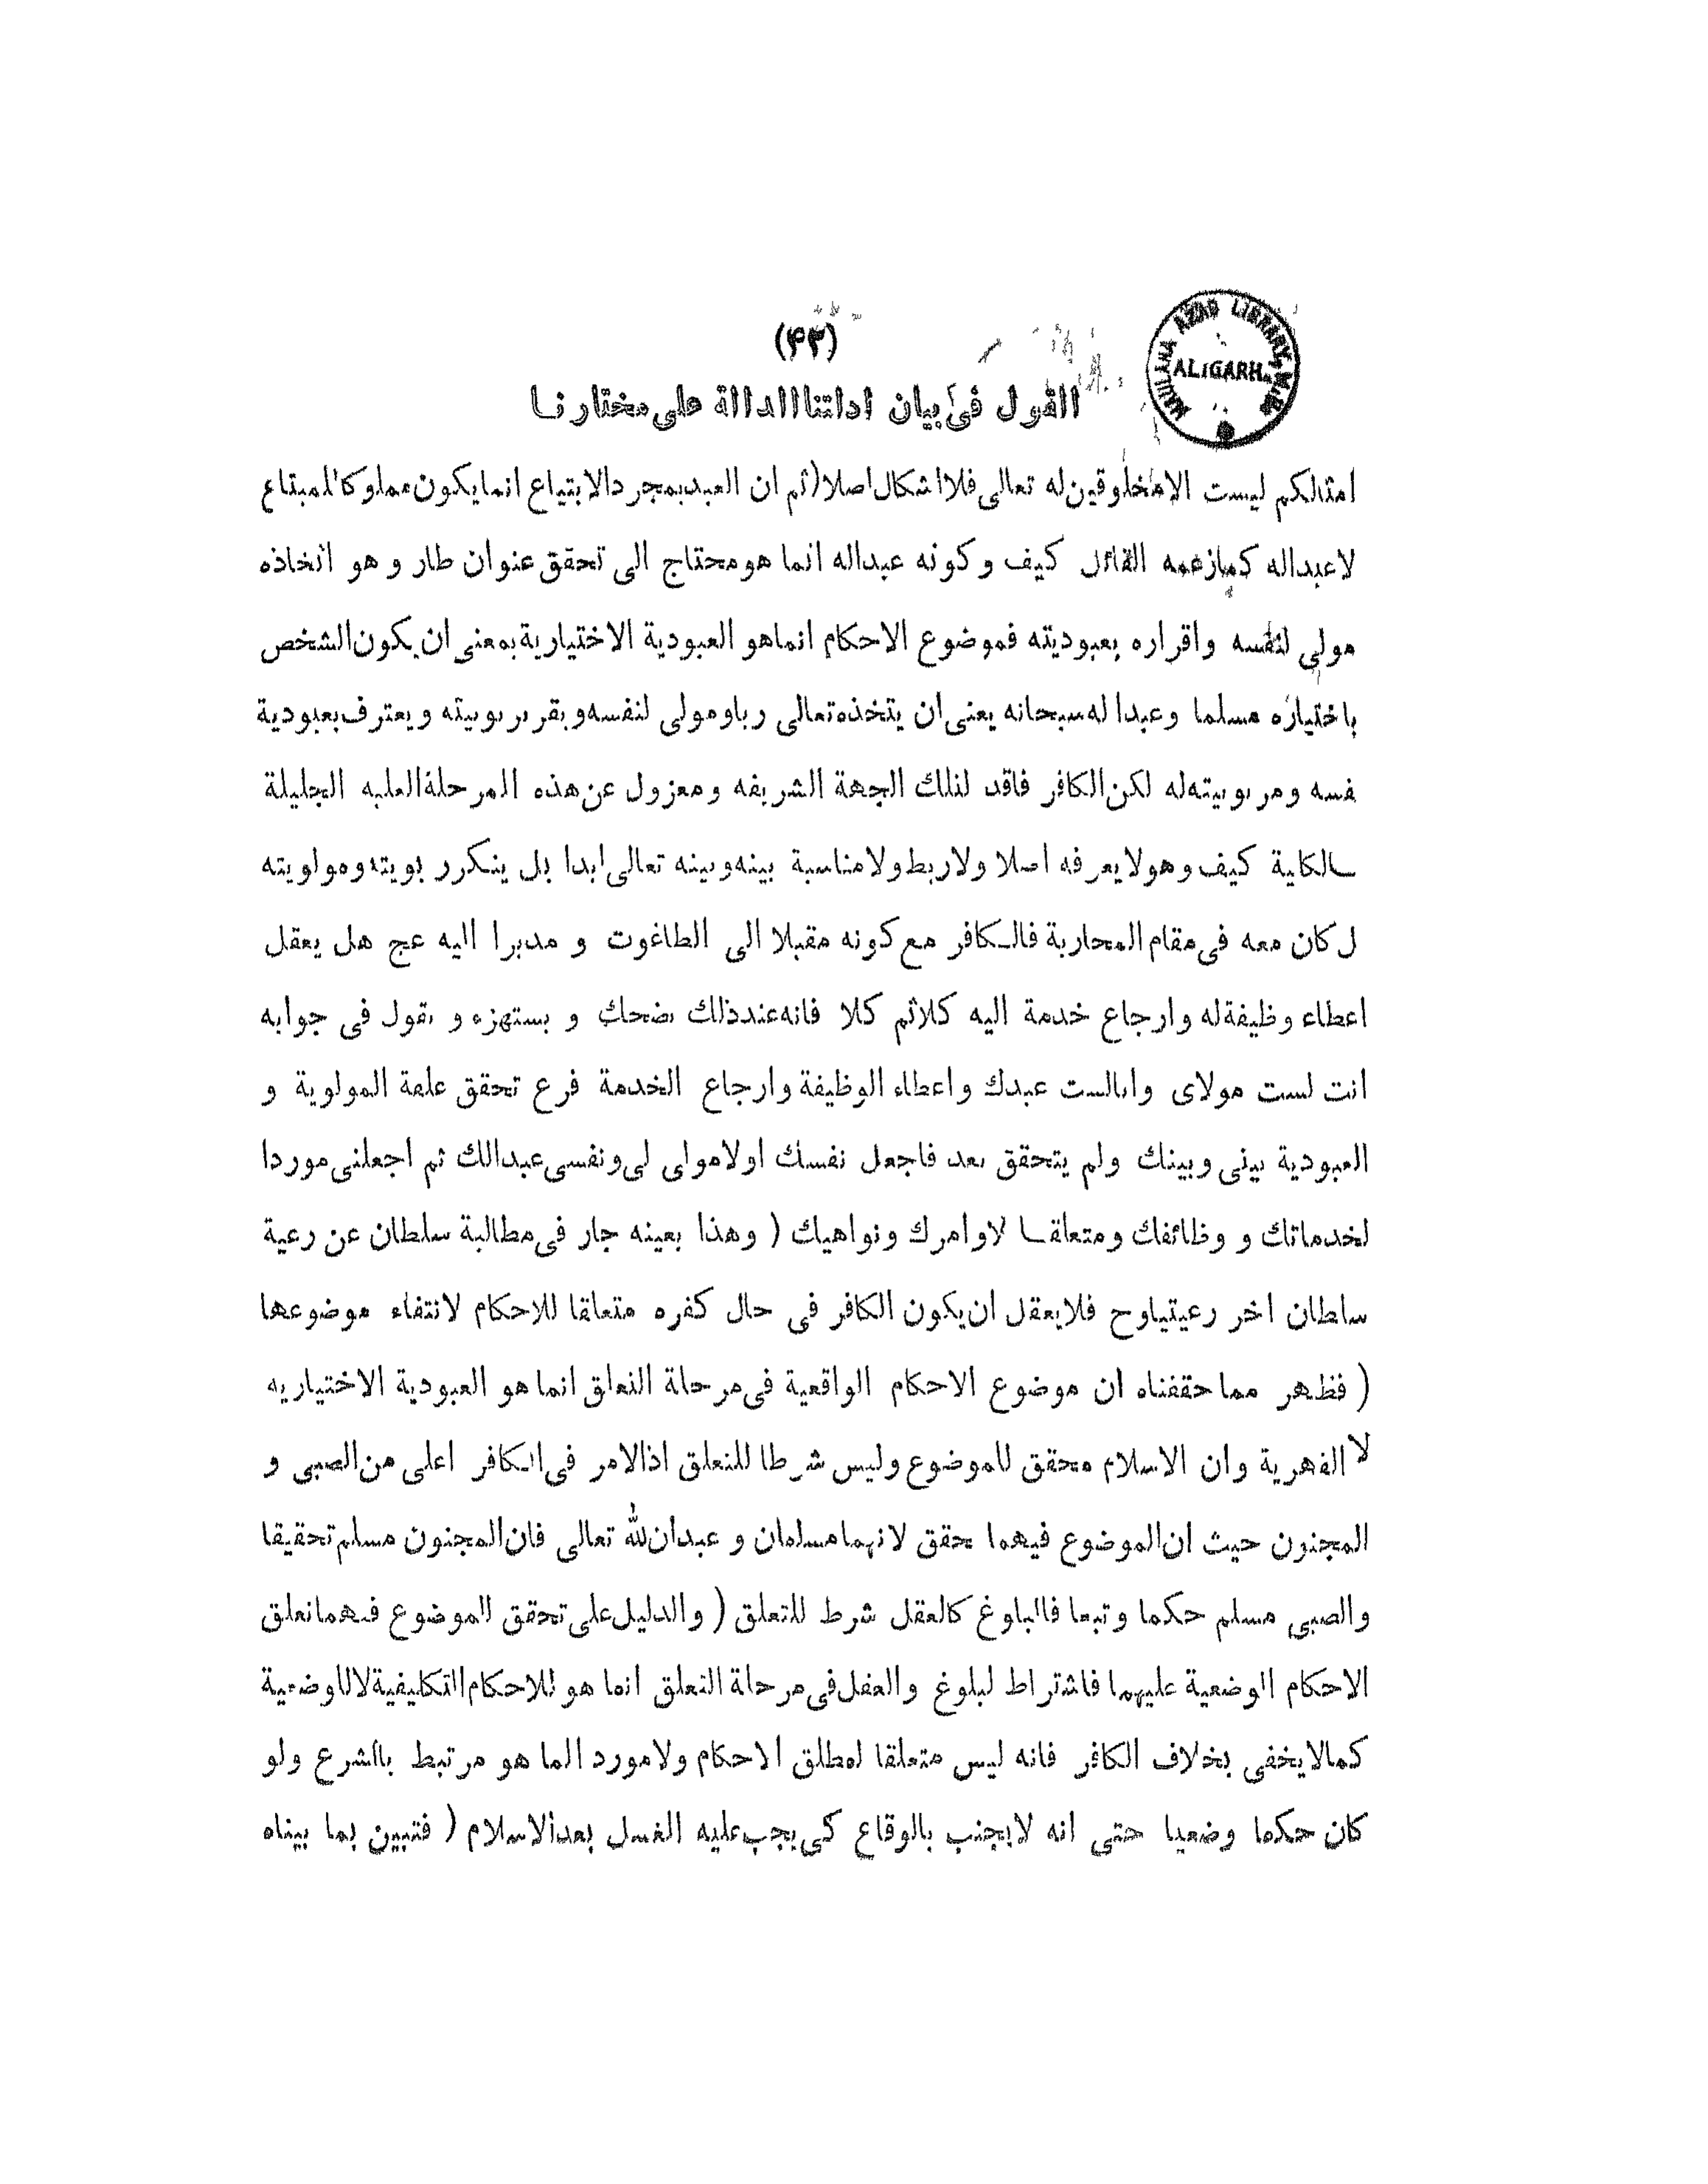 (۴۳)
MAULANA AZAD LIBRARY, ALIGARH
القول فى بيان ادلتنا الدالة على مختارنا
امثالكم ليست الامخلوقين له تعالى فلا اشكال اصلا (ثم ان العبد بمجرد الابتياع انما يكون مملوكا للمبتاع
لاعبدا له كما زعمه القائل كيف و كونه عبدا له انما هو محتاج الى تحقق عنوان طار و هو اتخاذه
مولى لنفسه واقراره بعبوديته فموضوع الاحكام انما هو العبودية الاختيارية بمعنى ان يكون الشخص
باختياره مسلما وعبدا له سبحانه يعنى ان يتخذه تعالى ربا ومولى لنفسه و يقر بربوبيته و يعترف بعبودية
نفسه ومربوبيته له لكن الكافر فاقد لتلك الجهة الشريفه ومعزول عن هذه المرحلة العليه الجليلة
بالكلية كيف وهو لا يعرفه اصلا ولا ربط ولا مناسبة بينه وبينه تعالى ابدا بل ينكر ربوبيته ومولويته
ل كان معه فى مقام المحاربة فالكافر مع كونه مقبلا الى الطاغوت و مدبرا اليه عج هل يعقل
اعطاء وظيفة له وارجاع خدمة اليه كلا ثم كلا فانه عند ذلك يضحك و يستهزء و يقول فى جوابه
انت لست مولاى وانا لست عبدك واعطاء الوظيفة وارجاع الخدمة فرع تحقق علقة المولوية و
العبودية بينى وبينك ولم يتحقق بعد فاجعل نفسك اولا مولى لى ونفسى عبدا لك ثم اجعلنى موردا
لخدماتك و وظائفك ومتعلقا لاوامرك ونواهيك ( وهذا بعينه جار فى مطالبة سلطان عن رعية
سلطان اخر رعيتيا وح فلا يعقل ان يكون الكافر فى حال كفره متعلقا للاحكام لانتفاء موضوعها
( فظهر مما حققناه ان موضوع الاحكام الواقعية فى مرحلة التعلق انما هو العبودية الاختياريه
لا القهرية وان الاسلام محقق للموضوع وليس شرطا للتعلق اذ الامر فى الكافر اعلى من الصبى و
المجنون حيث ان الموضوع فيهما محقق لانهما مسلمان و عبدان لله تعالى فان المجنون مسلم تحقيقا
والصبى مسلم حكما وتبعا فالبلوغ كالعقل شرط للتعلق ( والدليل على تحقق الموضوع فيهما تعلق
الاحكام الوضعية عليهما فاشتراط لبلوغ والعقل فى مرحلة التعلق انما هو للاحكام التكليفية لا للوضعية
كما لا يخفى بخلاف الكافر فانه ليس متعلقا لمطلق الاحكام ولا مورد الما هو مرتبط بالشرع ولو
كان حكما وضعيا حتى انه لا يجنب بالوقاع كى يجب عليه الغسل بعد الاسلام ( فتبين بما بيناه